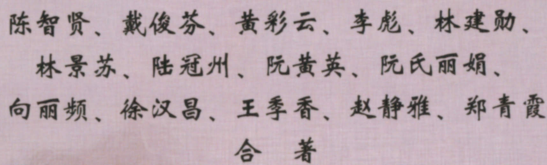 陈智贤、戴俊芬、黄彩云、李彪、林建勋、
林景苏、陆冠州、阮黄英、阮氏丽娟、
向丽频、徐汉昌、王季香、赵静雅、郑青霞
合 著